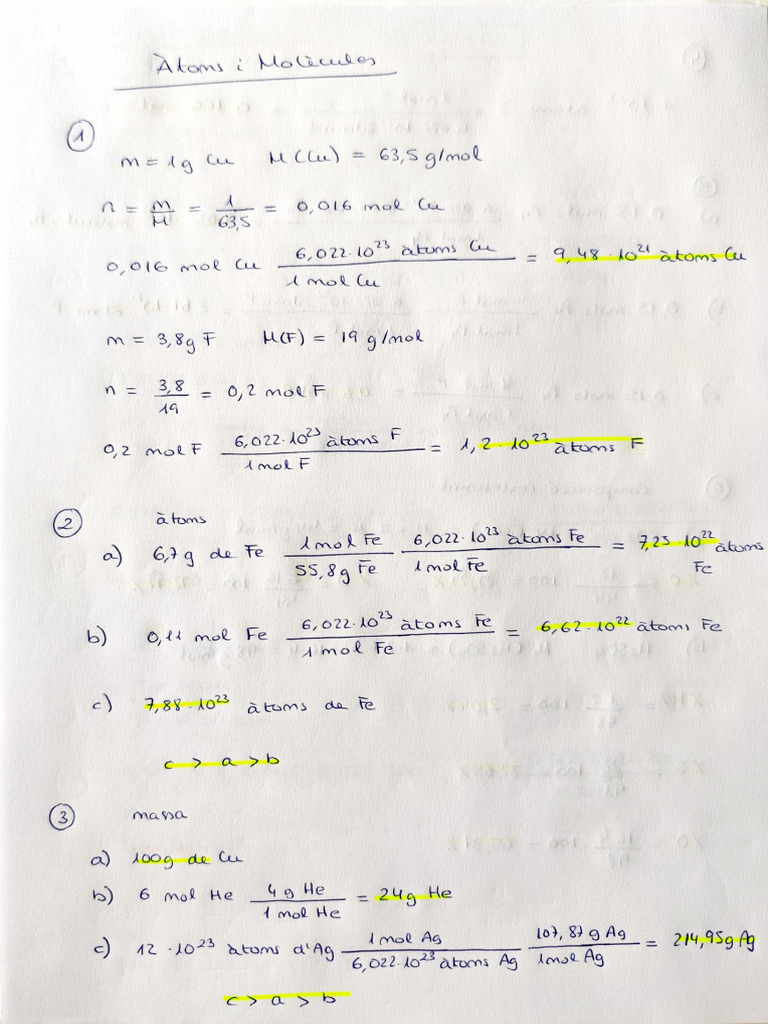 Àtoms i Molècules
1
m = 1g Cu M(Cu) = 63,5 g/mol
n = m/M = 1/63,5 = 0,016 mol Cu
0,016 mol Cu 6,022·10²³ àtoms Cu / 1 mol Cu = 9,48·10²¹ àtoms Cu
m = 3,8g F M(F) = 19 g/mol
n = 3,8/19 = 0,2 mol F
0,2 mol F 6,022·10²³ àtoms F / 1 mol F = 1,2·10²³ àtoms F
2 àtoms
a) 6,7g de Fe 1 mol Fe / 55,8g Fe 6,022·10²³ àtoms Fe / 1 mol Fe = 7,23·10²² àtoms Fe
b) 0,11 mol Fe 6,022·10²³ àtoms Fe / 1 mol Fe = 6,62·10²² àtoms Fe
c) 7,88·10²³ àtoms de Fe
c > a > b
3 massa
a) 100g de Cu
b) 6 mol He 4g He / 1 mol He = 24g He
c) 12·10²³ àtoms d'Ag 1 mol Ag / 6,022·10²³ àtoms Ag 107,87g Ag / 1 mol Ag = 214,95g Ag
c > a > b